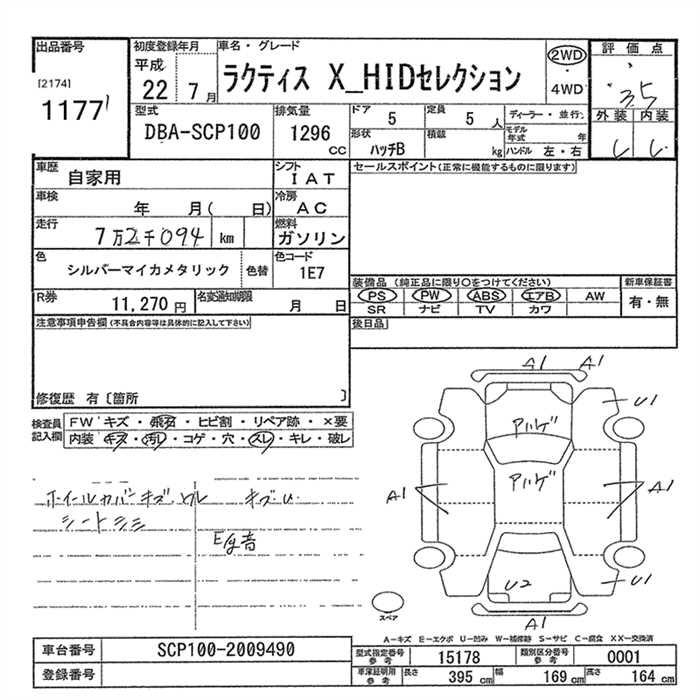 出品番号
[2174]
1177
初度登録年月
平成
22 7月
車名・グレード
ラクティス X_HIDセレクション
2WD
・
4WD
評価点
3.5
外装 内装
型式
DBA-SCP100
排気量
1296
CC
ドア
5
定員
5
人
形状
ハッチB
積載
kg
ディーラー・並行
モデル年式
年
ハンドル 左・右
車歴
自家用
シフト
IAT
車検
年 月( 日)
冷房
AC
走行
7万2千094 km
燃料
ガソリン
色
シルバーマイカメタリック
色替
色コード
1E7
R券
11,270円
名変通知期限
月 日
セールスポイント(正常に機能するものに限ります)
装備品 (純正品に限り○をつけてください)
PS PW ABS エアB AW
SR ナビ TV カワ
新車保証書
有・無
後日品
注意事項申告欄(不具合内容等は具体的に記入して下さい)
修復歴 有〔箇所 〕
検査員記入欄
FW キズ・飛石・ヒビ割・リペア跡・×要
内装 キズ・汚レ・コゲ・穴・スレ・キレ・破レ
ホイールカバーキズ,ワレ キズU
シートシミ
E/g音
A1 A1
U1
アハゲ
アハゲ
A1
A1
U2
U1
A1
スペア
A-キズ E-エクボ U-凹み W-補修跡 S-サビ C-腐食 XX-交換済
車台番号
SCP100-2009490
登録番号
型式指定番号
参考
15178
類別区分番号
参考
0001
車庫証明用
参考
長さ
395 cm
幅
169 cm
高さ
164 cm